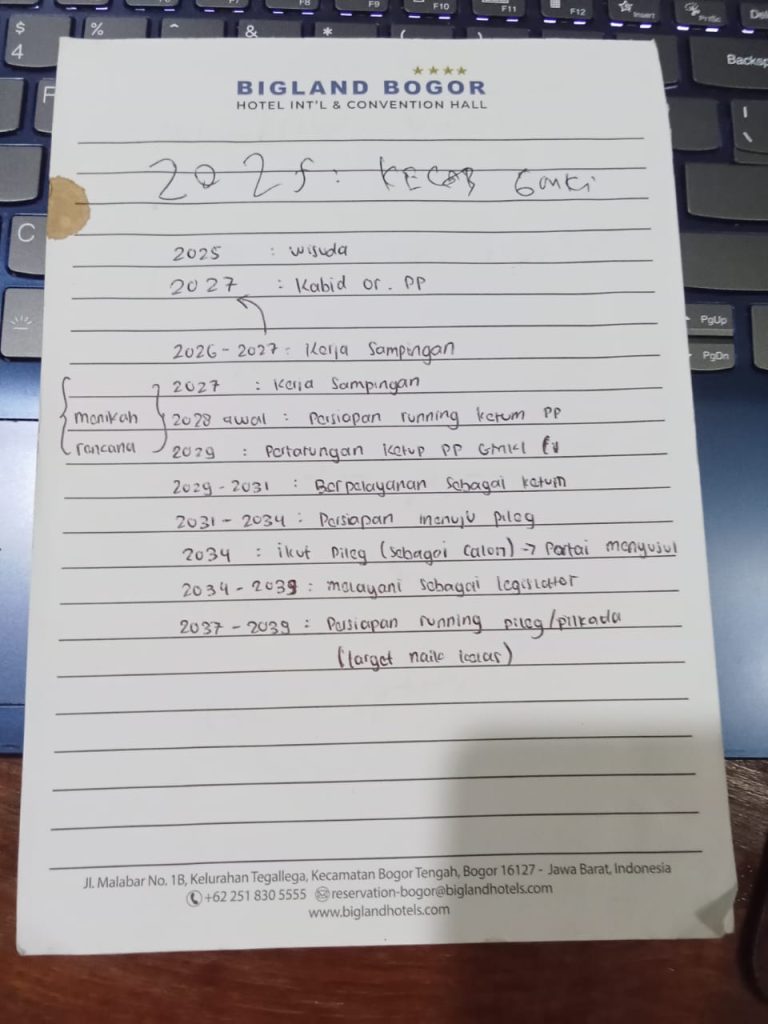 BIGLAND BOGOR
HOTEL INT'L & CONVENTION HALL
2025 : KECAB GMKI
2025 : wisuda
2027 : Kabid or. PP
2026 - 2027 : Kerja Sampingan
2027 : Kerja Sampingan
menikah
2028 awal : Persiapan running ketum PP
rencana
2029 : Pertarungan Ketup PP GMKI
2029 - 2031 : Berpelayanan sebagai ketum
2031 - 2034 : Persiapan menuju pileg
2034 : ikut pileg (sebagai calon) -> Partai menyusul
2034 - 2039 : melayani sebagai legislator
2037 - 2039 : Persiapan running pileg/pilkada
(target naik kelas)
Jl. Malabar No. 1B, Kelurahan Tegallega, Kecamatan Bogor Tengah, Bogor 16127 - Jawa Barat, Indonesia
+62 251 830 5555 reservation-bogor@biglandhotels.com
www.biglandhotels.com
$
4
%
^
&
*
(
F8
F9
F10
F11
F12
Insert
PrtSc
Backsp
C
PgUp
PgDn